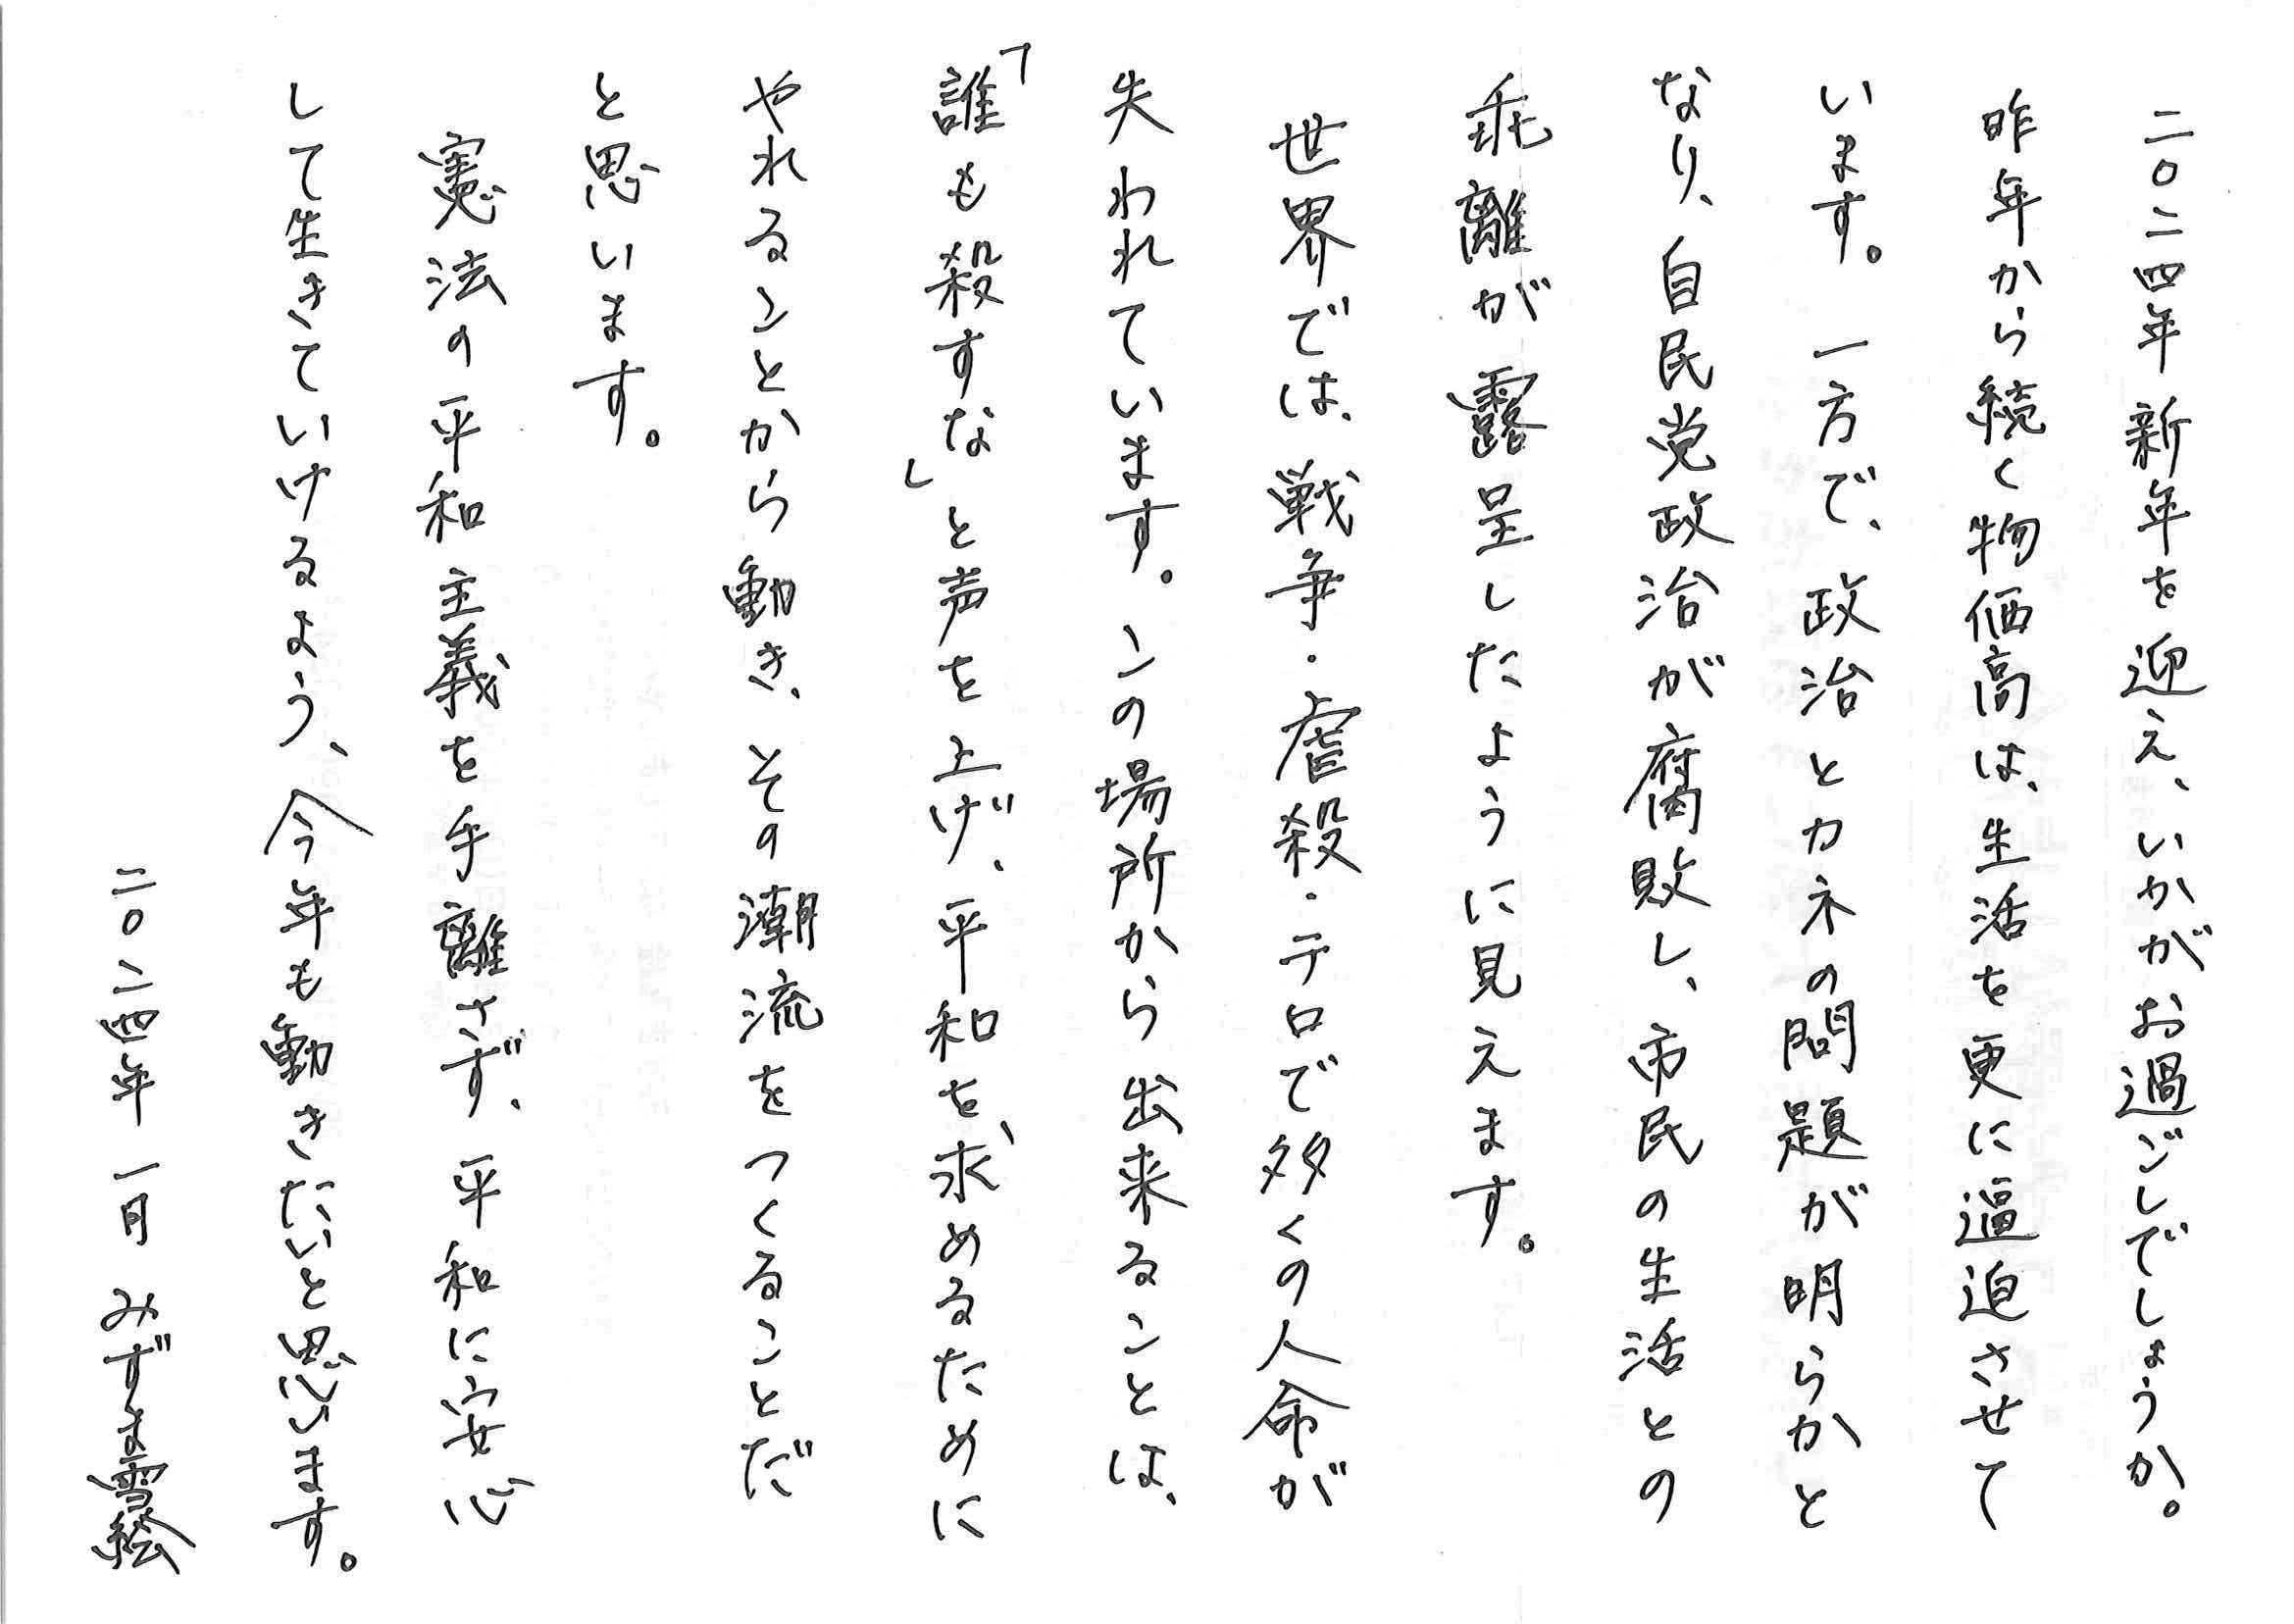 二〇二四年新年を迎え、いかがお過ごしでしょうか。
昨年から続く物価高は、生活を更に逼迫させて
います。一方で、政治とカネの問題が明らかと
なり、自民党政治が腐敗し、市民の生活との
乖離が露呈したように見えます。
世界では、戦争・虐殺・テロで多くの人命が
失われています。この場所から出来ることは、
「誰も殺すな」と声を上げ、平和を求めるために
やれることから動き、その潮流をつくることだ
と思います。
憲法の平和主義を手離さず、平和に安心
して生きていけるよう、今年も動きたいと思います。
二〇二四年一月 みずま雪絵